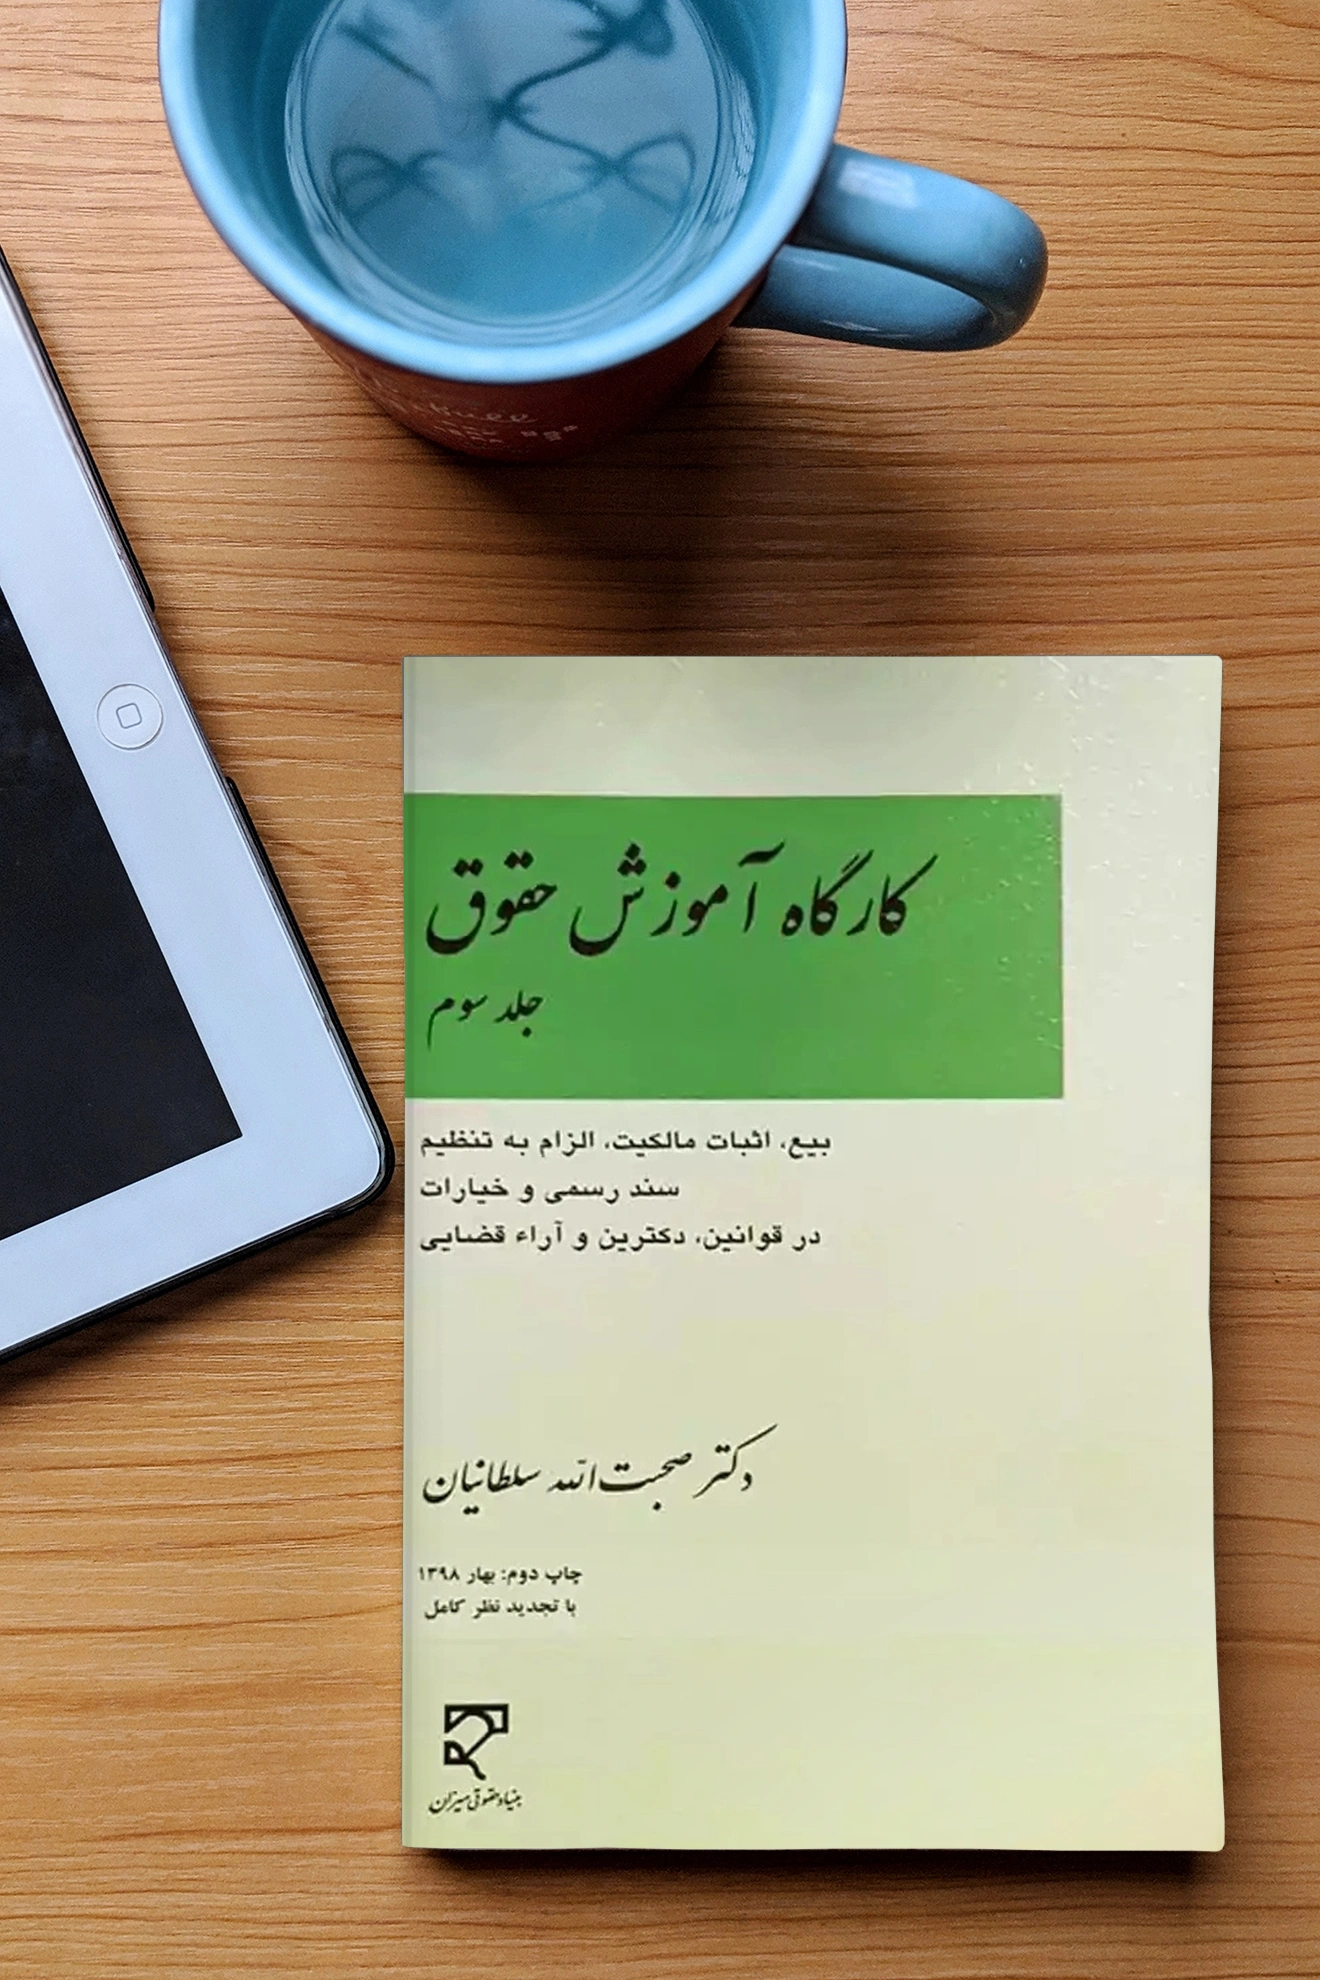 کارگاه آموزش حقوق
جلد سوم
بیع، اثبات مالکیت، الزام به تنظیم
سند رسمی و خیارات
در قوانین، دکترین و آراء قضایی
دکتر صحبت‌الله سلطانیان
چاپ دوم: بهار ۱۳۹۸
با تجدید نظر کامل
بنیاد حقوقی میزان